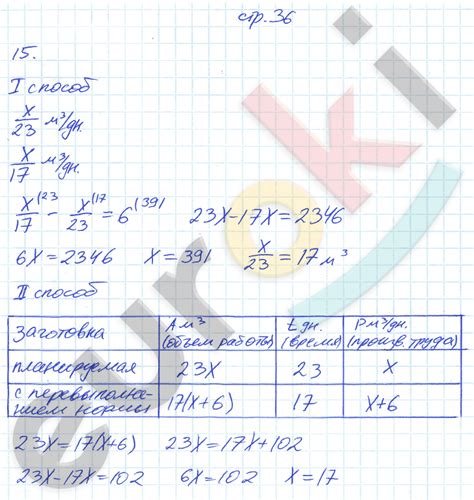 стр. 36
15.
I способ
x/23 м³/дн.
x/17 м³/дн.
x/17 (23 - x/23 (17 = 6 (391 23x-17x=2346
6x=2346 x=391 x/23 = 17 м³
II способ
Заготовка A м³ (объем работы) t дн. (время) P м³/дн. (произв. труда)
планируемая 23x 23 x
с перевыполне-
нием нормы 17(x+6) 17 x+6
23x=17(x+6) 23x=17x+102
23x-17x=102 6x=102 x=17
euroki